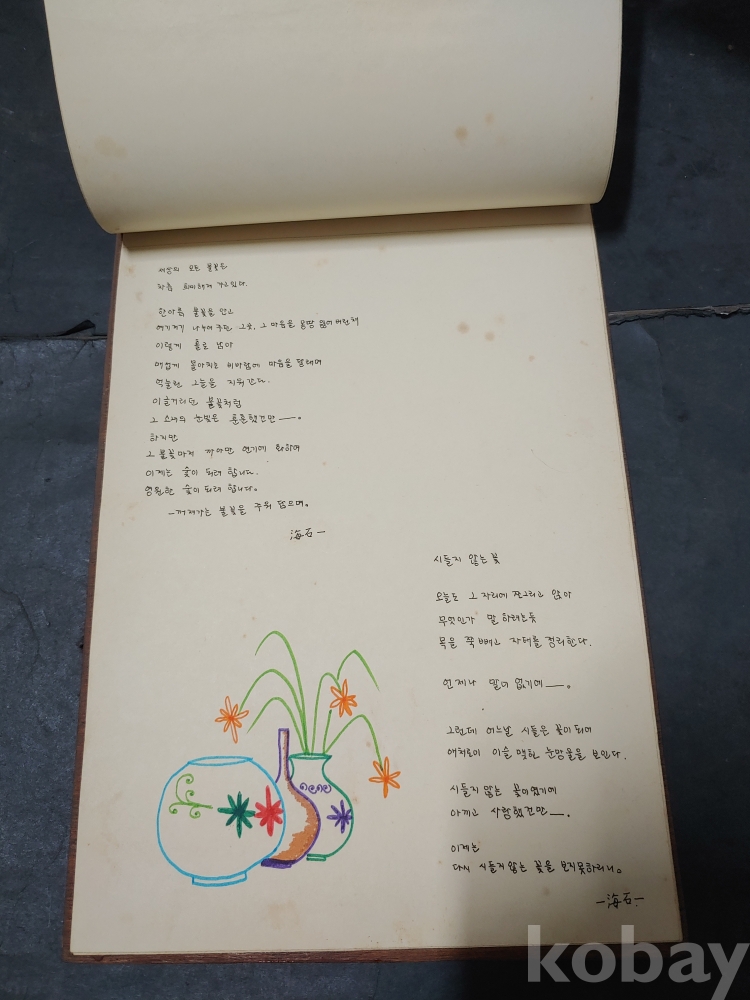 세상의 모든 불꽃은
차츰 희미해져 가고 있다.
한아름 불꽃을 안고
여기저기 나누어 주던 그 손, 그 마음을 몽땅 잃어버린채
이렇게 홀로 남아
매섭게 몰아치는 비바람에 마음을 달래며
억눌린 그늘을 지워간다.
이글거리던 불꽃처럼
그 소녀의 눈빛은 훈훈했건만ㅡ.
하지만
그 불꽃마저 까아만 연기에 휘하며
이제는 숯이 되려 합니다.
영원한 숯이 되려 합니다.
-꺼져가는 불꽃을 주워 담으며.
海石-
시들지 않는 꽃
오늘도 그 자리에 쭈그리고 앉아
무엇인가 말 하려는듯
목을 쭉 빼고 자태를 정리한다.
언제나 말이 없기에ㅡ.
그런데 어느날 시들은 꽃이 되어
애처로이 이슬 맺힌 눈망울을 보인다.
시들지 않는 꽃이었기에
아끼고 사랑했건만ㅡ.
이제는
다시 시들지 않는 꽃을 보지못하리니.
-海石-
kobay